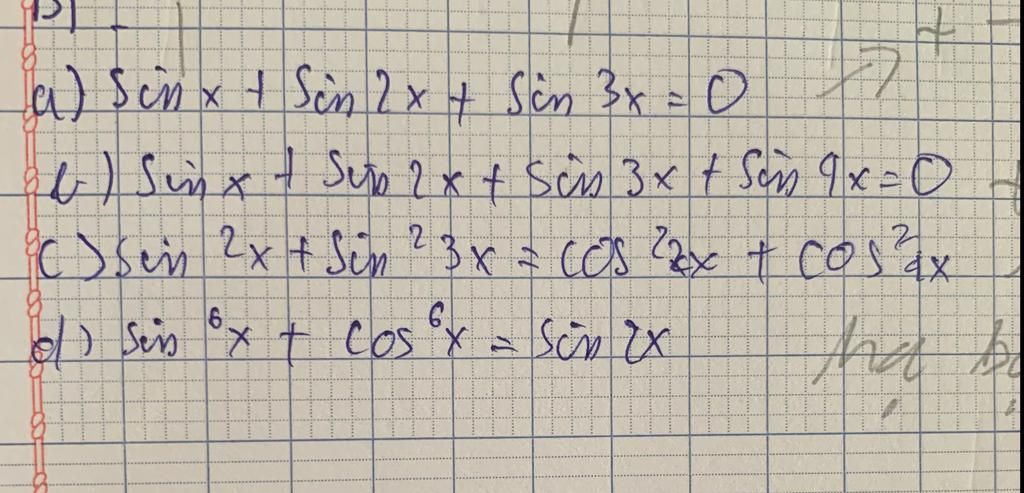 a) Sin x + Sin 2x + Sin 3x = 0
b) Sin x + Sin 2x + Sin 3x + Sin 4x = 0
c) Sin ²x + Sin ² 3x = cos ²2x + cos²4x
d) sin ⁶x + cos ⁶x = sin 2x